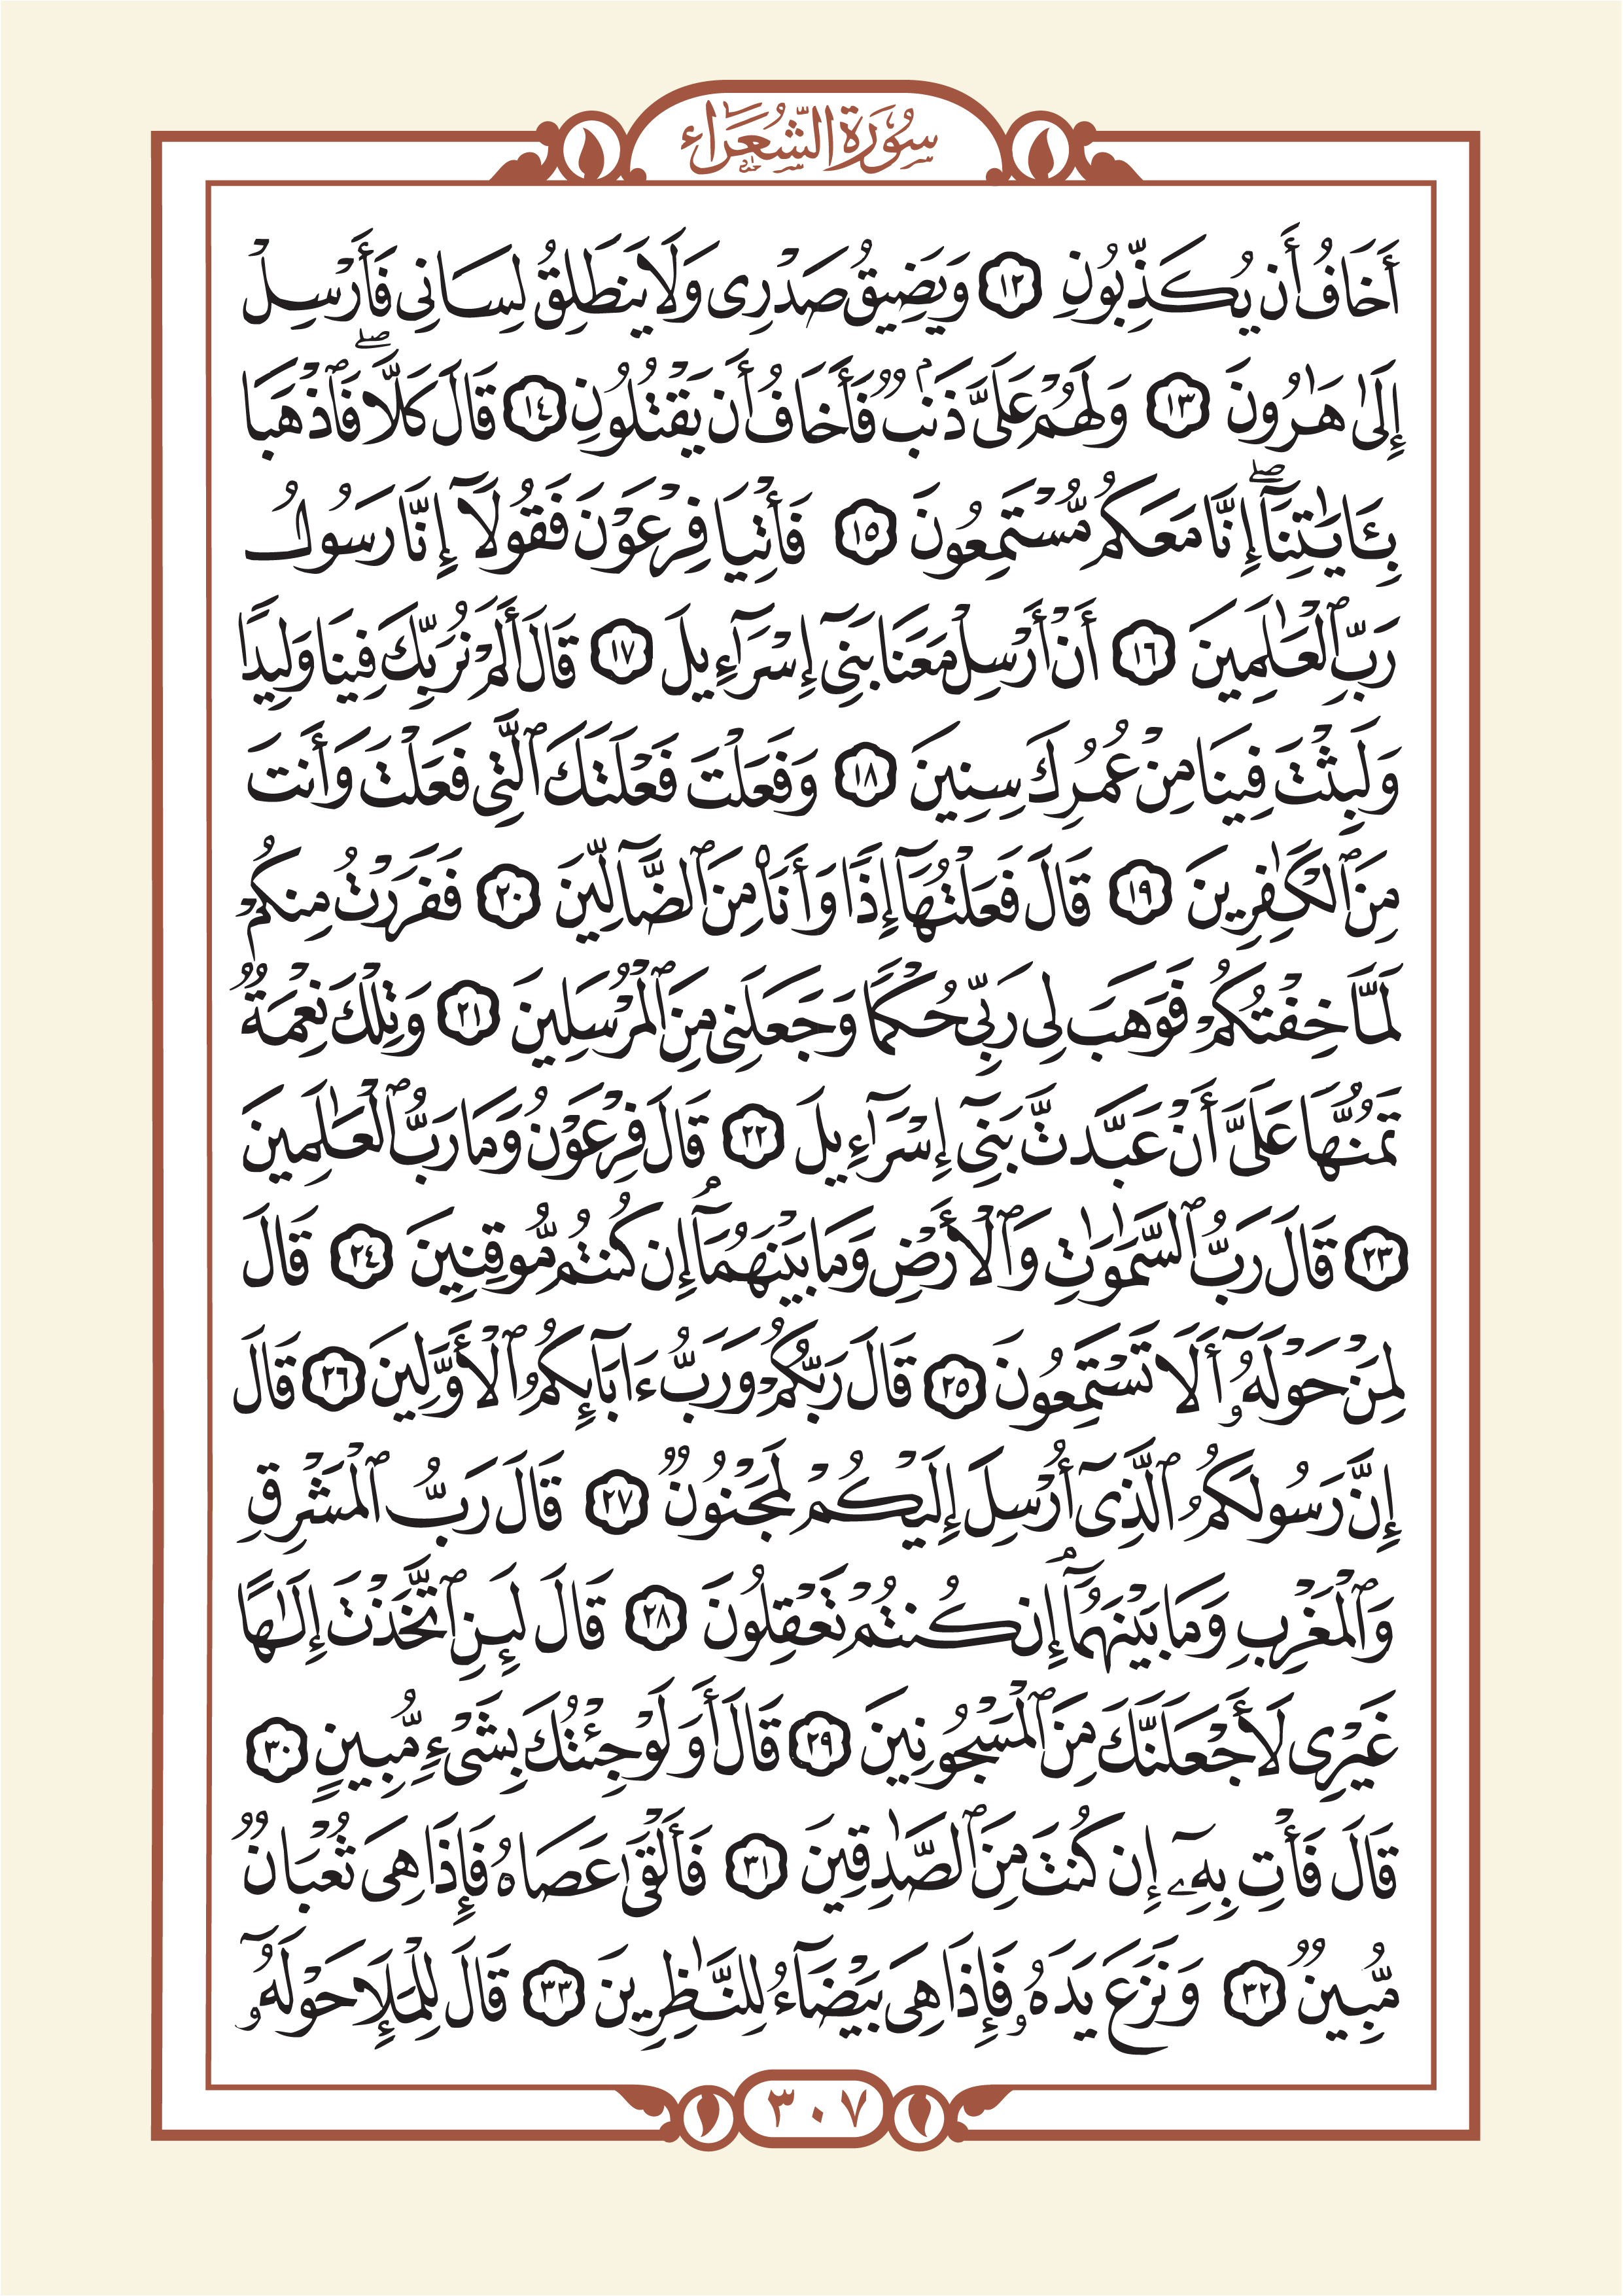 سُورَةُ الشُّعَرَاء
أَخَافُ أَن يُكَذِّبُونِ ١٢ وَيَضِيقُ صَدْرِى وَلَا يَنطَلِقُ لِسَانِى فَأَرْسِلْ
إِلَىٰ هَـٰرُونَ ١٣ وَلَهُمْ عَلَىَّ ذَنۢبٌ فَأَخَافُ أَن يَقْتُلُونِ ١٤ قَالَ كَلَّا ۖ فَٱذْهَبَا
بِـَٔايَـٰتِنَآ ۖ إِنَّا مَعَكُم مُّسْتَمِعُونَ ١٥ فَأْتِيَا فِرْعَوْنَ فَقُولَآ إِنَّا رَسُولُ
رَبِّ ٱلْعَـٰلَمِينَ ١٦ أَنْ أَرْسِلْ مَعَنَا بَنِىٓ إِسْرَٰٓءِيلَ ١٧ قَالَ أَلَمْ نُرَبِّكَ فِينَا وَلِيدًا
وَلَبِثْتَ فِينَا مِنْ عُمُرِكَ سِنِينَ ١٨ وَفَعَلْتَ فَعْلَتَكَ ٱلَّتِى فَعَلْتَ وَأَنتَ
مِنَ ٱلْكَـٰفِرِينَ ١٩ قَالَ فَعَلْتُهَآ إِذًا وَأَنَا۠ مِنَ ٱلضَّآلِّينَ ٢٠ فَفَرَرْتُ مِنكُمْ
لَمَّا خِفْتُكُمْ فَوَهَبَ لِى رَبِّى حُكْمًا وَجَعَلَنِى مِنَ ٱلْمُرْسَلِينَ ٢١ وَتِلْكَ نِعْمَةٌ
تَمُنُّهَا عَلَىَّ أَنْ عَبَّدتَّ بَنِىٓ إِسْرَٰٓءِيلَ ٢٢ قَالَ فِرْعَوْنُ وَمَا رَبُّ ٱلْعَـٰلَمِينَ
٢٣ قَالَ رَبُّ ٱلسَّمَـٰوَٰتِ وَٱلْأَرْضِ وَمَا بَيْنَهُمَآ ۖ إِن كُنتُم مُّوقِنِينَ ٢٤ قَالَ
لِمَنْ حَوْلَهُۥٓ أَلَا تَسْتَمِعُونَ ٢٥ قَالَ رَبُّكُمْ وَرَبُّ ءَابَآئِكُمُ ٱلْأَوَّلِينَ ٢٦ قَالَ
إِنَّ رَسُولَكُمُ ٱلَّذِىٓ أُرْسِلَ إِلَيْكُمْ لَمَجْنُونٌ ٢٧ قَالَ رَبُّ ٱلْمَشْرِقِ
وَٱلْمَغْرِبِ وَمَا بَيْنَهُمَآ ۖ إِن كُنتُمْ تَعْقِلُونَ ٢٨ قَالَ لَئِنِ ٱتَّخَذْتَ إِلَـٰهًا
غَيْرِى لَأَجْعَلَنَّكَ مِنَ ٱلْمَسْجُونِينَ ٢٩ قَالَ أَوَلَوْ جِئْتُكَ بِشَىْءٍ مُّبِينٍ ٣٠
قَالَ فَأْتِ بِهِۦٓ إِن كُنتَ مِنَ ٱلصَّـٰدِقِينَ ٣١ فَأَلْقَىٰ عَصَاهُ فَإِذَا هِىَ ثُعْبَانٌ
مُّبِينٌ ٣٢ وَنَزَعَ يَدَهُۥ فَإِذَا هِىَ بَيْضَآءُ لِلنَّـٰظِرِينَ ٣٣ قَالَ لِلْمَلَإِ حَوْلَهُۥٓ
٣٠٧